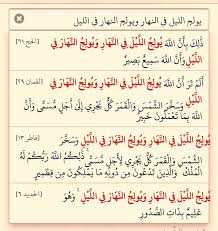 يولج الليل في النهار ويولج النهار في الليل
[الحج ٦١]
ذَٰلِكَ بِأَنَّ اللَّهَ يُولِجُ اللَّيْلَ فِي النَّهَارِ وَيُولِجُ النَّهَارَ فِي
اللَّيْلِ وَأَنَّ اللَّهَ سَمِيعٌ بَصِيرٌ
[لقمان ٢٩]
أَلَمْ تَرَ أَنَّ اللَّهَ يُولِجُ اللَّيْلَ فِي النَّهَارِ وَيُولِجُ النَّهَارَ فِي
اللَّيْلِ وَسَخَّرَ الشَّمْسَ وَالْقَمَرَ كُلٌّ يَجْرِي إِلَىٰ أَجَلٍ مُسَمًّى وَأَنَّ اللَّهَ
بِمَا تَعْمَلُونَ خَبِيرٌ
[فاطر ١٣]
يُولِجُ اللَّيْلَ فِي النَّهَارِ وَيُولِجُ النَّهَارَ فِي اللَّيْلِ وَسَخَّرَ
الشَّمْسَ وَالْقَمَرَ كُلٌّ يَجْرِي لِأَجَلٍ مُسَمًّى ۚ ذَٰلِكُمُ اللَّهُ رَبُّكُمْ لَهُ
الْمُلْكُ ۚ وَالَّذِينَ تَدْعُونَ مِنْ دُونِهِ مَا يَمْلِكُونَ مِنْ قِطْمِيرٍ
[الحديد ٦]
يُولِجُ اللَّيْلَ فِي النَّهَارِ وَيُولِجُ النَّهَارَ فِي اللَّيْلِ ۚ وَهُوَ
عَلِيمٌ بِذَاتِ الصُّدُورِ